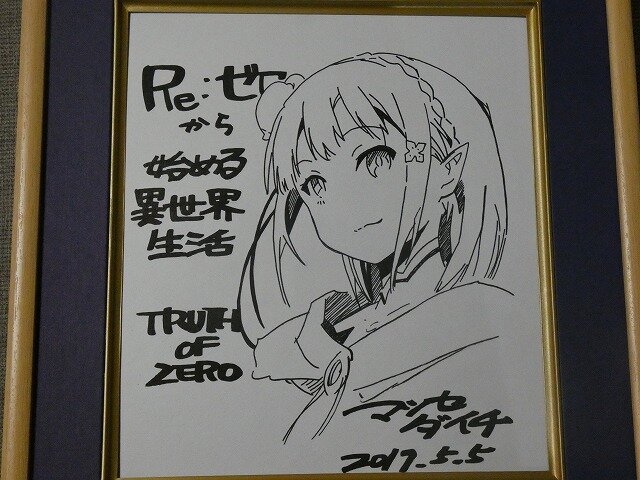 Re:ゼロ
から
始める
異世界
生活
TRUTH
OF
ZERO
マツセ
ダイチ
2017.5.5